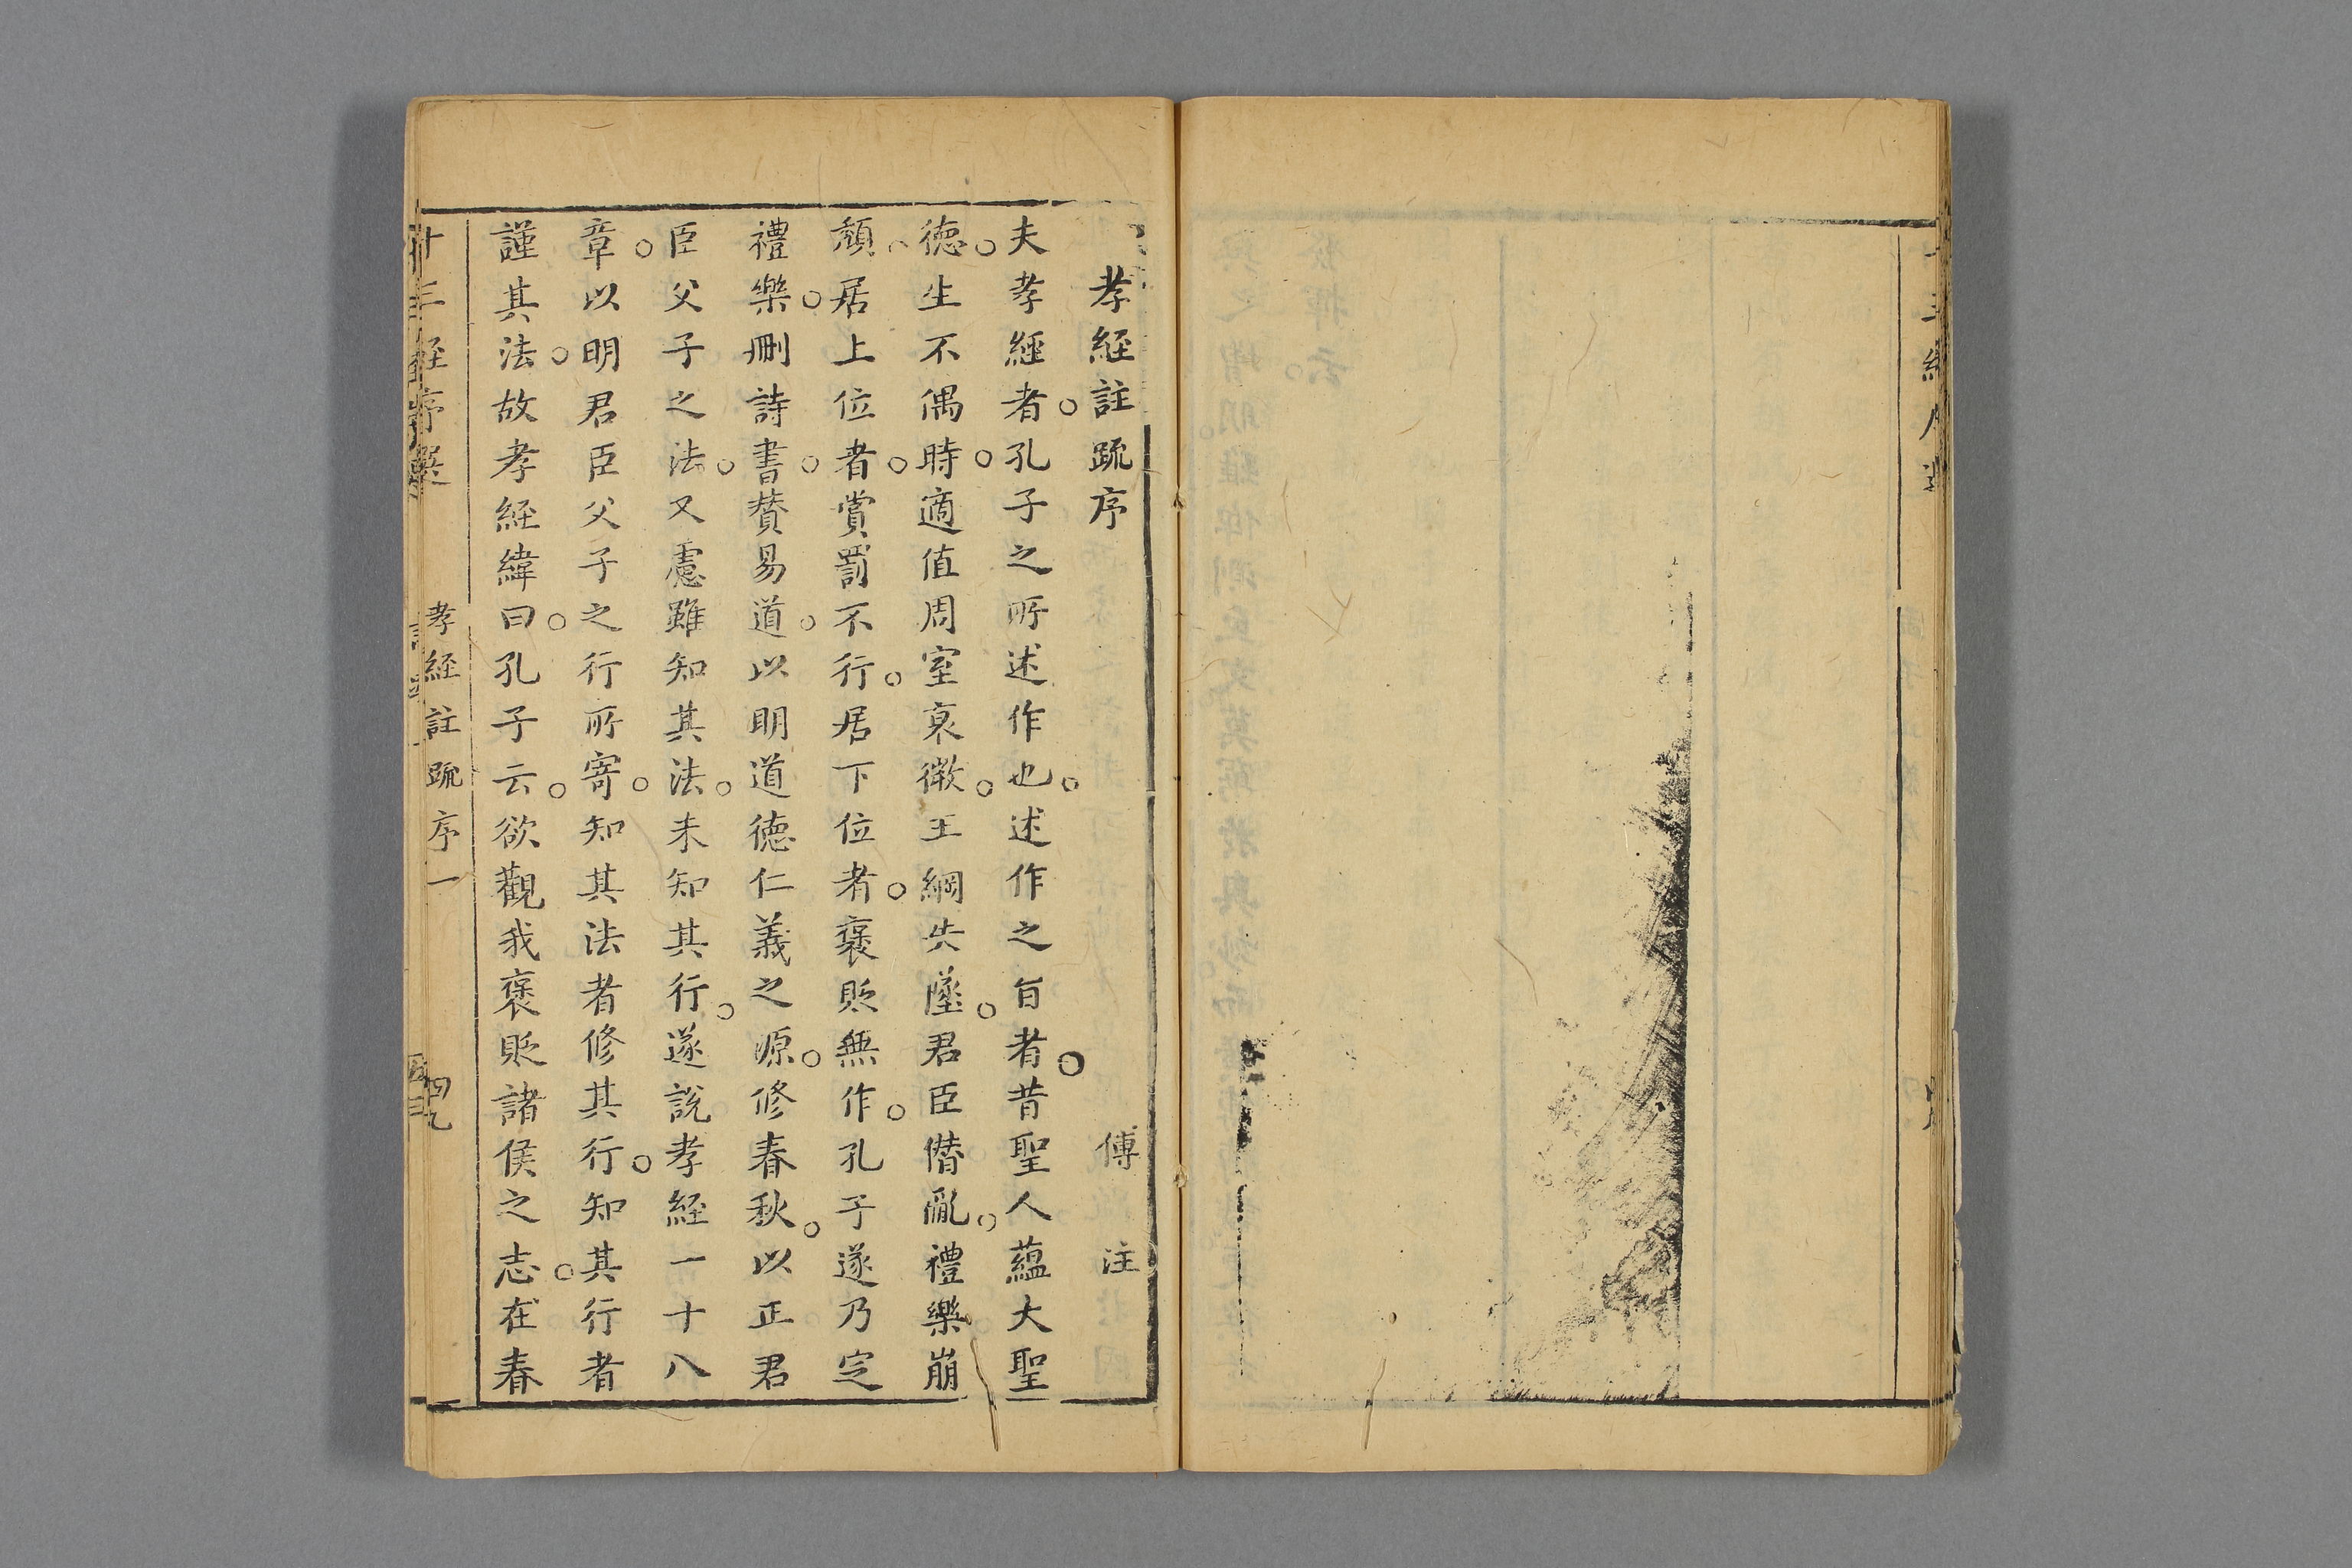 孝經註䟽序
傅注
夫孝經者孔子之所述作也述作之旨者昔聖人蘊大聖
德生不偶時適值周室衰微王綱失墜君臣僭亂禮樂崩
頹居上位者賞罰不行居下位者褒貶無作孔子遂乃定
禮樂刪詩書贊易道以明道德仁義之源修春秋以正君
臣父子之法又慮雖知其法未知其行遂說孝經一十八
章以明君臣父子之行所寄知其法者修其行知其行者
謹其法故孝經緯曰孔子云欲觀我褒貶諸侯之志在春
十三經序選
孝經註䟽序一
四九